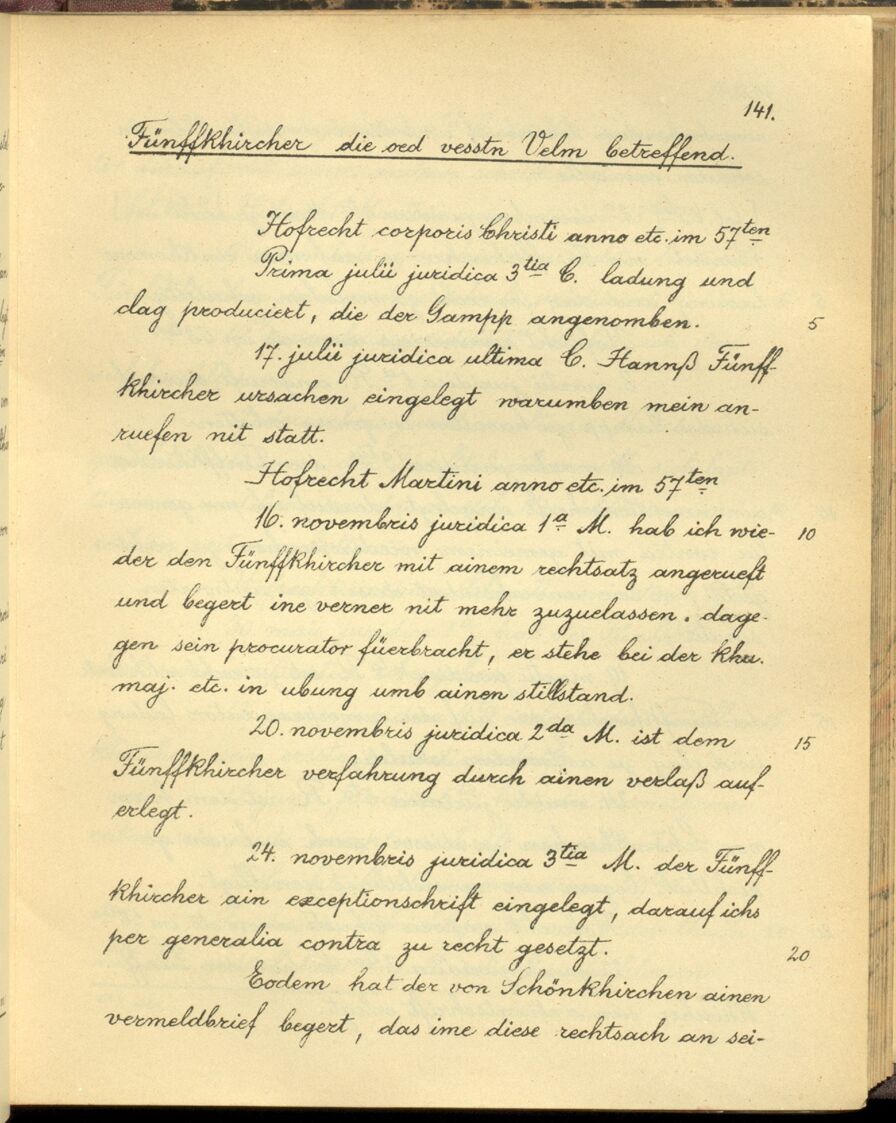 141.
Fünffkhircher die oed vesstn Velm betreffend.
Hofrecht corporis Christi anno etc. im 57ten
Prima julii juridica 3tia C. ladung und
clag produciert, die der Gampp angenomben. 5
17. julii juridica ultima C. Hannß Fünff-
khircher ursachen eingelegt warumben mein an-
ruefen nit statt.
Hofrecht Martini anno etc. im 57ten
16. novembris juridica 1a M. hab ich wie- 10
der den Fünffkhircher mit ainem rechtsatz angerueft
und begert ine verner nit mehr zuzuelassen. dage-
gen sein procurator füerbracht, er stehe bei der khu.
maj. etc. in ubung umb ainen stillstand.
20. novembris juridica 2da M. ist dem 15
Fünffkhircher verfahrung durch ainen verlaß auf-
erlegt.
24. novembris juridica 3tia M. der Fünff-
khircher ain exceptionschrift eingelegt, darauf ichs
per generalia contra zu recht gesetzt. 20
Eodem hat der von Schönkhirchen ainen
vermeldbrief begert, das ime diese rechtsach an sei-